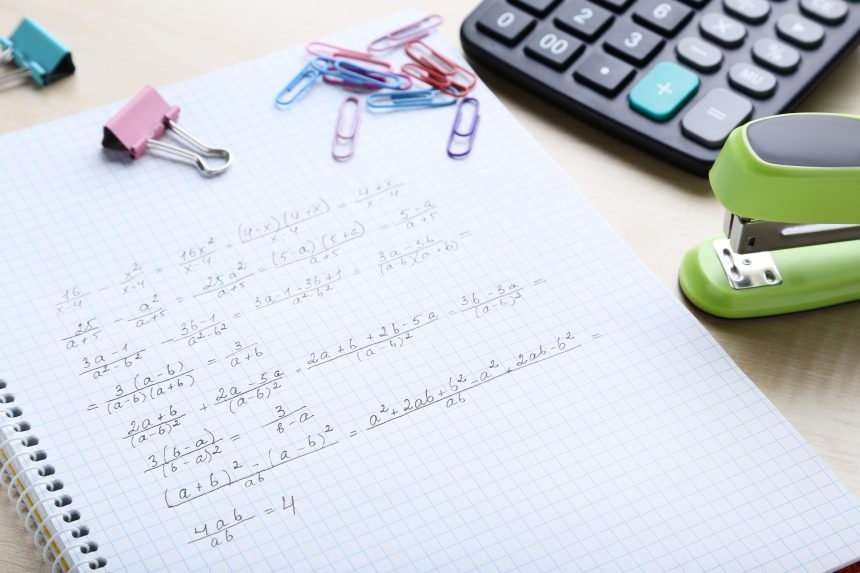 0 2 6
00 3 × ▶
. − %
+ = MU
16/x-4 - x²/x-4 = 16x²/x-4 = (4-x)(4+x)/x-4 = 4+x/x-4
25/a+5 - a²/a+5 = 25a²/a+5 = (5-a)(5+a)/a+5 = 5-a/a+5
3a-1/a²-b² - 3b-1/a²-b² = 3a-1-3b+1/a²-b² = 3a-3b/(a-b)(a+b) =
= 3(a-b)/(a-b)(a+b) = 3/a+b
2a+b/(a-b)² + 2a-5a/(a-b)² = 2a+b+2b-5a/(a-b)² = 3b-3a/(a-b)² =
3(b-a)/(b-a)² = 3/b-a
(a+b)²-(a-b)²/ab = a²+2ab+b²-a²+2ab-b²/ab =
4ab/ab = 4